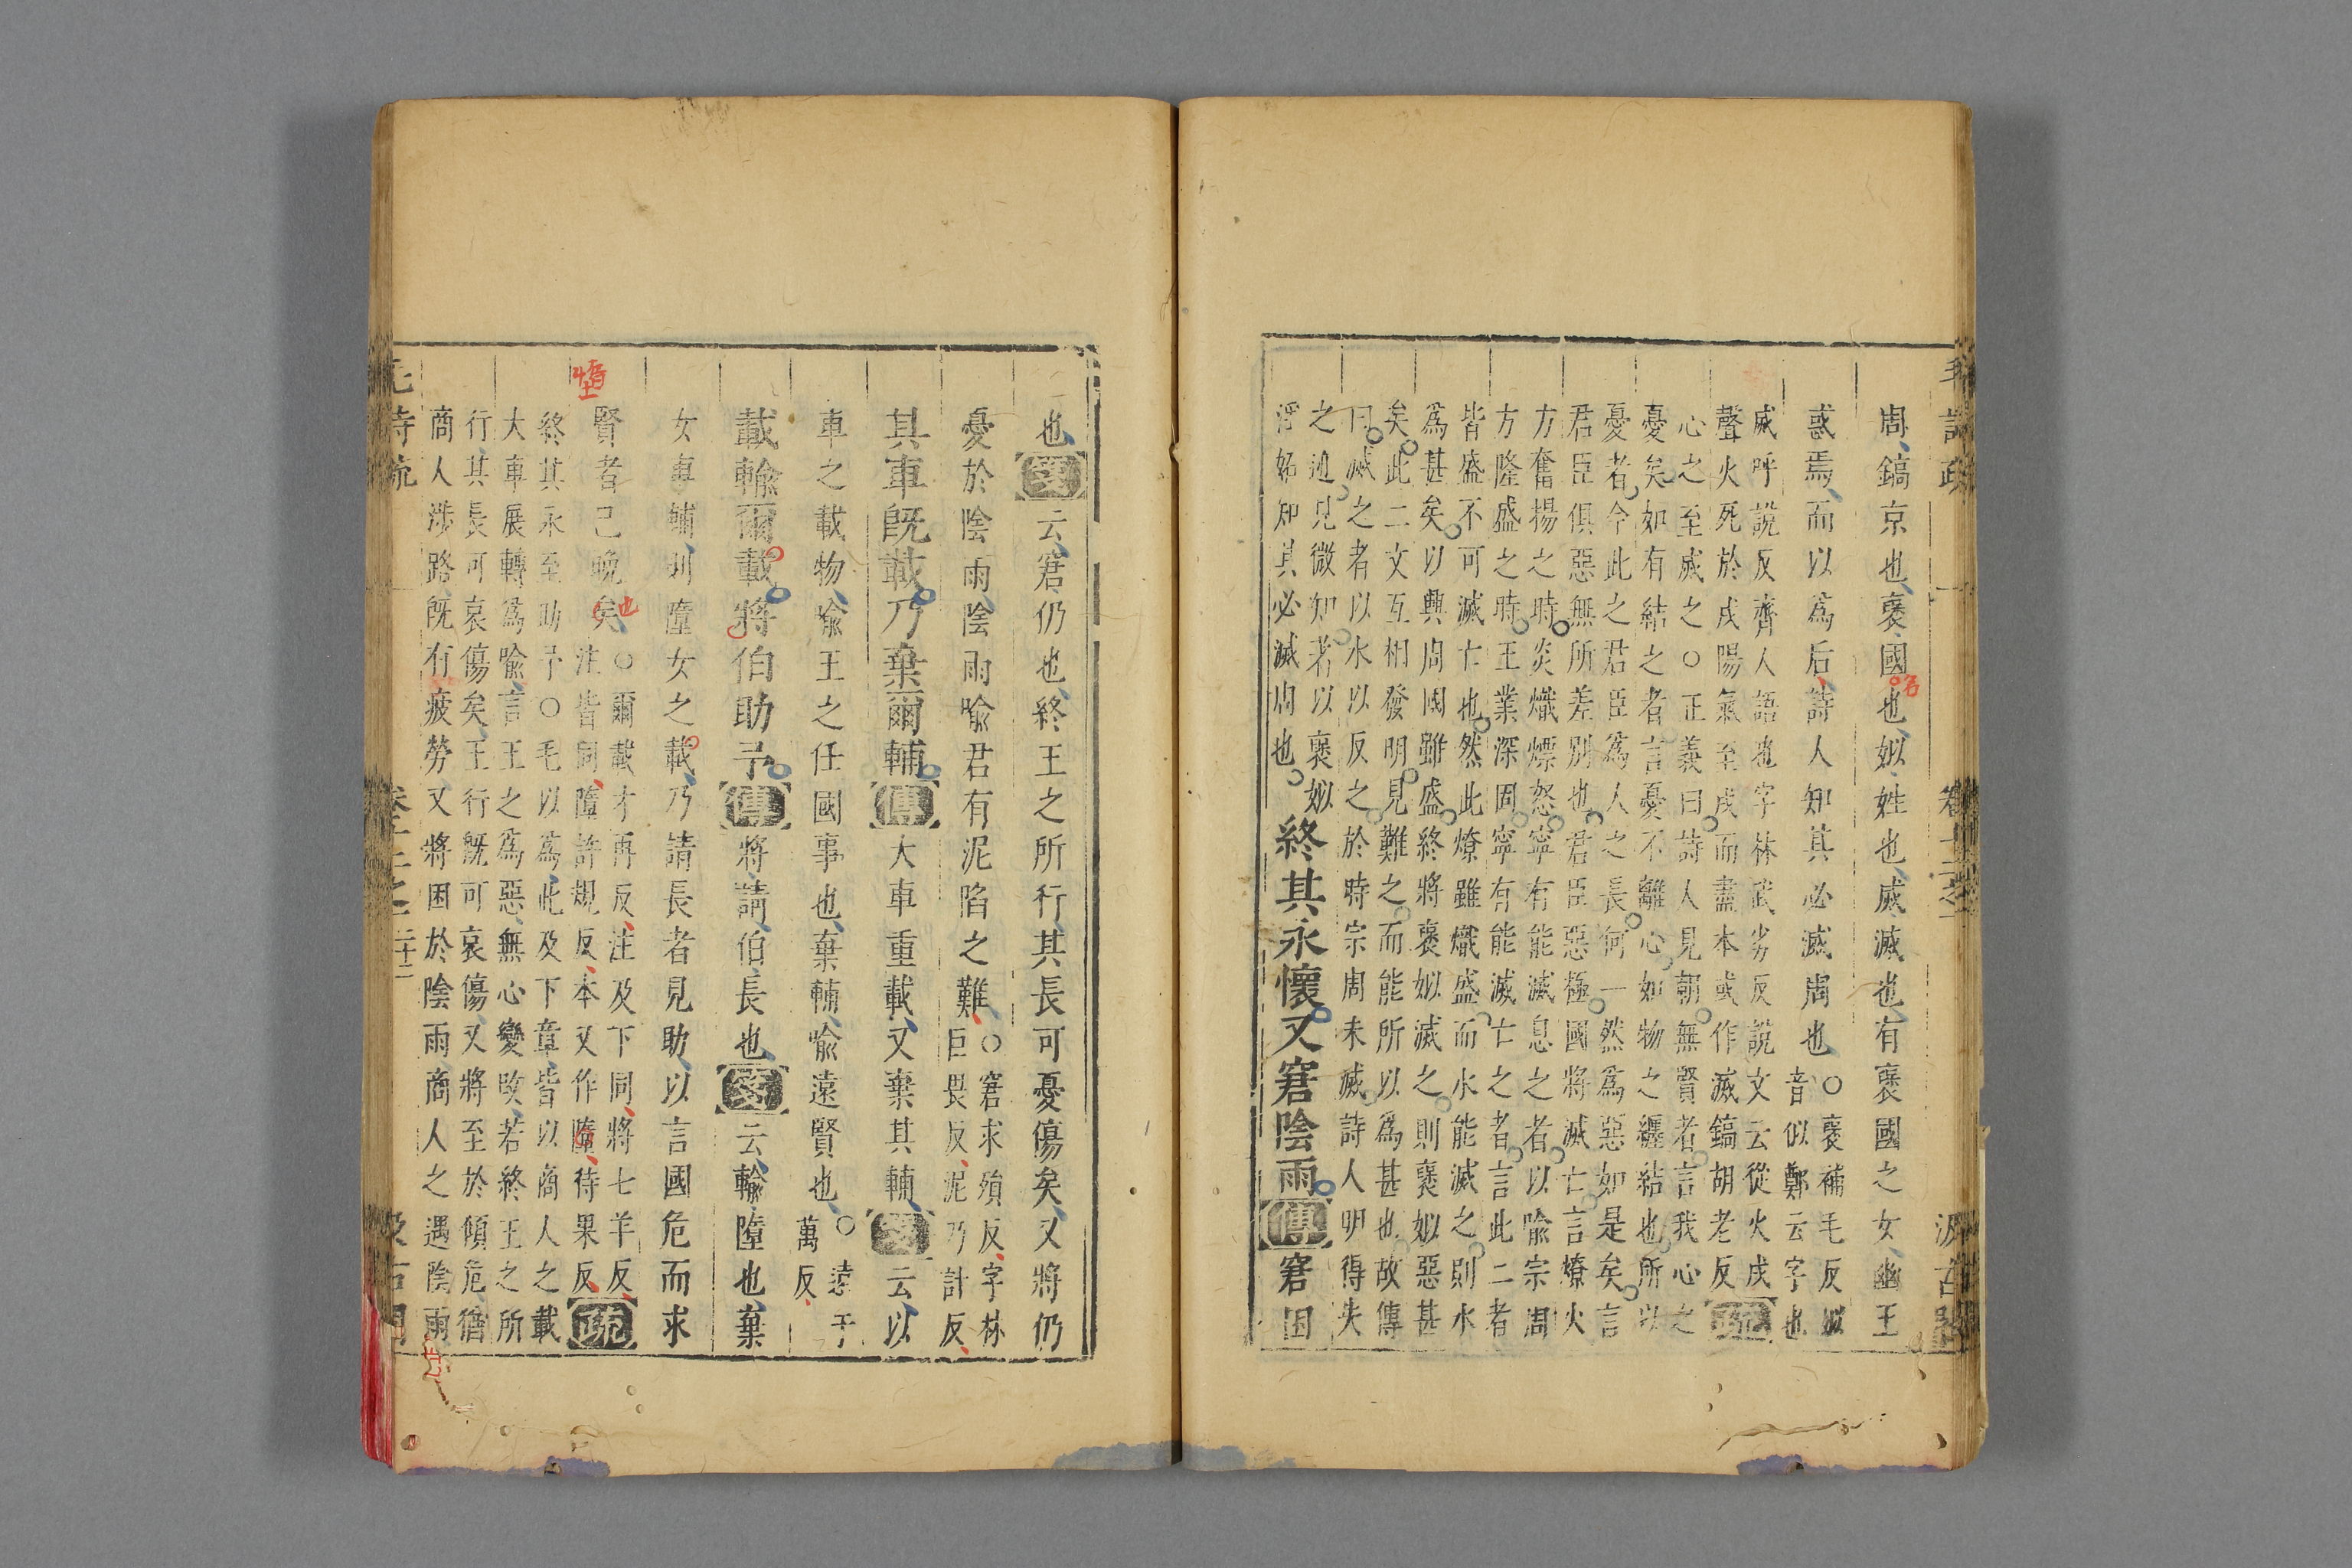 毛詩疏 卷十二之一 汲古閣
周鎬京也褒國也姒姓也烕滅也有褒國之女幽王
惑焉而以爲后詩人知其必滅周也○褒補毛反姒
音似鄭云字也
烕呼說反齊人語也字林武劣反說文云從火戌
聲火死於戌陽氣至戌而盡本或作滅鎬胡老反疏
心之至烕之○正義曰詩人見朝無賢者言我心之
憂矣如有結之者言憂不離心如物之纏結也所以
憂者今此之君臣爲人之長何一然爲惡如是矣言
君臣俱惡無所差別也君臣惡極國將滅亡言燎火
方奮揚之時炎熾熛怒寧有能滅息之者以喻宗周
方隆盛之時王業深固寧有能滅亡之者言此二者
皆盛不可滅亡也然此燎雖熾盛而水能滅之則水
爲甚矣以興周國雖盛終將褒姒滅之則褒姒惡甚
矣此二文互相發明見難之而能所以爲甚也故傳
曰滅之者以水以反之於時宗周未滅詩人明得失
之迹見微知著以褒姒
淫妬知其必滅周也終其永懷又窘陰雨傳窘困
也箋云窘仍也終王之所行其長可憂傷矣又將仍
憂於陰雨陰雨喻君有泥陷之難○窘求殞反字林
巨畏反泥乃計反
其車既載乃棄爾輔傳大車重載又棄其輔箋云以
車之載物喻王之任國事也棄輔喻遠賢也○遠于
萬反
載輸爾載將伯助予傳將請伯長也箋云輸墮也棄
女車輔則墮女之載乃請長者見助以言國危而求
賢者已晚矣○爾載才再反注及下同將七羊反
注皆同墮許規反本又作隋待果反疏
終其永至助予○毛以爲此及下章皆以商人之載
大車展轉爲喻言王之爲惡無心變改若終王之所
行其長可哀傷矣王行既可哀傷又將至於傾危猶
商人涉路既有疲勞又將困於陰雨商人之遇陰雨
毛詩疏 卷十二之一 二十二 汲古閣
名
也